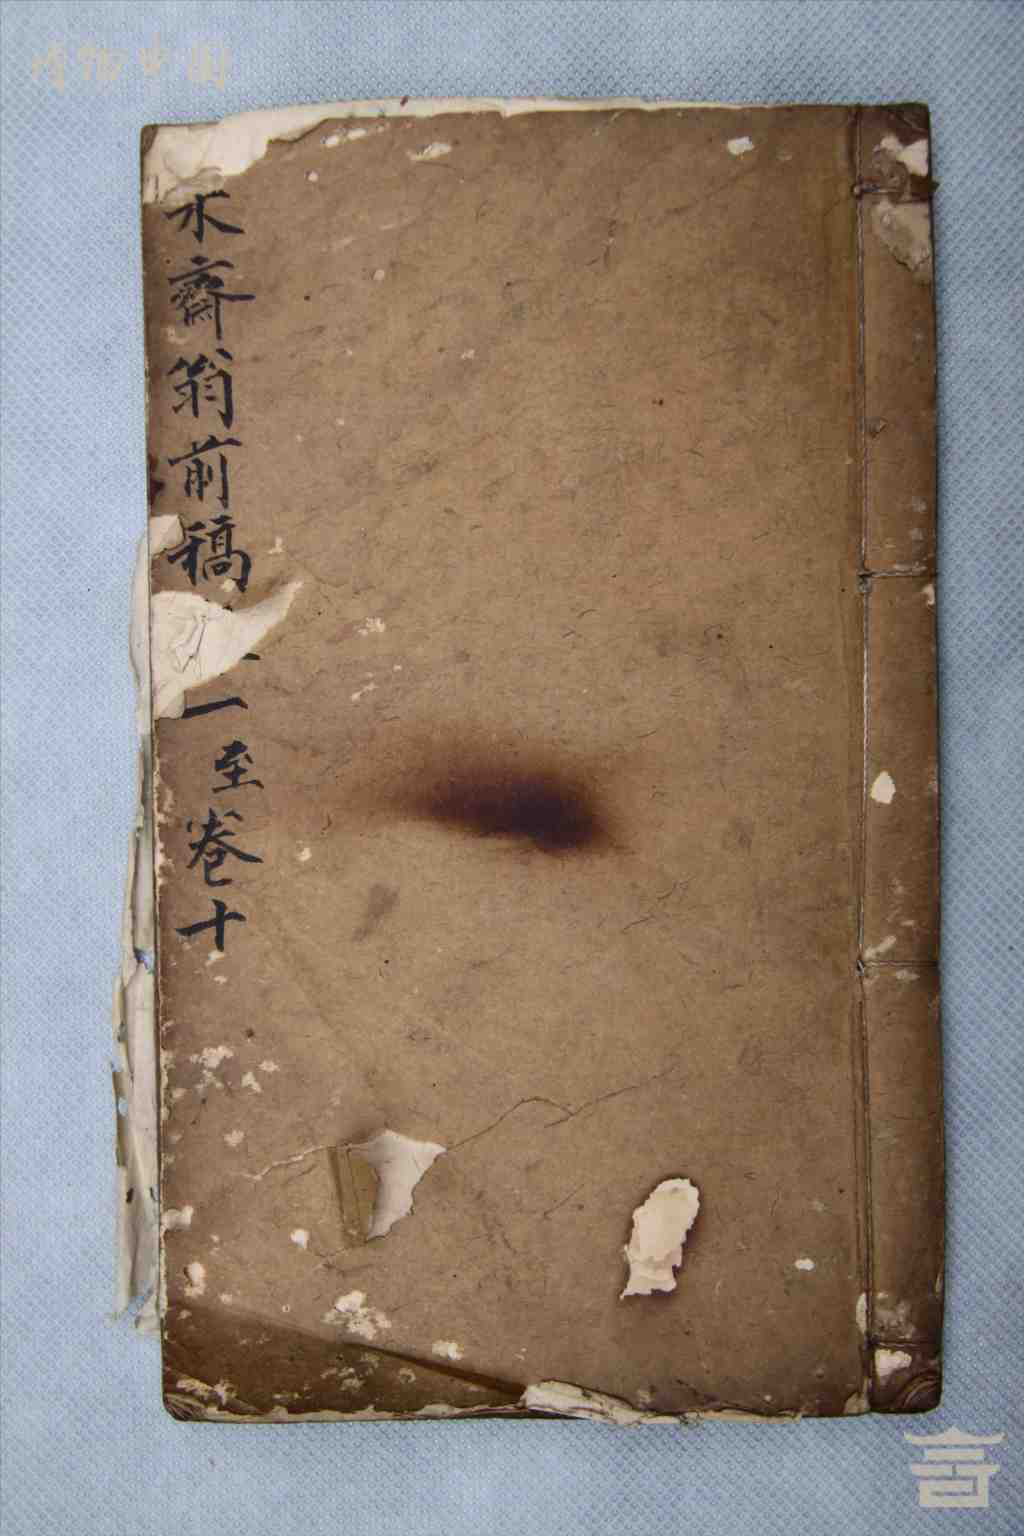 博物中国
木齋翁前稿
一至卷十